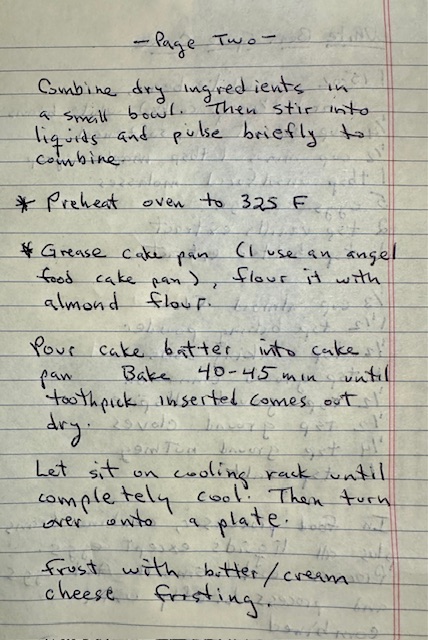 - Page Two -
Combine dry ingredients in
a small bowl. Then stir into
liquids and pulse briefly to
combine.
* Preheat oven to 325 F
* Grease cake pan (I use an angel
food cake pan), flour it with
almond flour.
Pour cake batter into cake
pan Bake 40-45 min until
toothpick inserted comes out
dry.
Let sit on cooling rack until
completely cool. Then turn
over onto a plate.
Frost with butter/cream
cheese frosting.